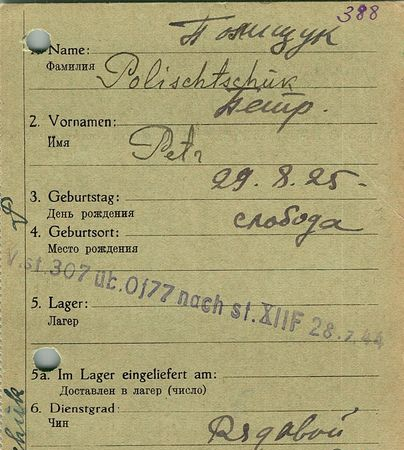 388
Полищук
1. Name:
Фамилия
Polischtschuk
Петр.
2. Vornamen:
Имя
Petr
29.8.25-
3. Geburtstag:
День рождения
слобода
4. Geburtsort:
Место рождения
V. St. 307 ut. Oj77 nach St. XIIF 28.7.44
5. Lager:
Лагер
5a. Im Lager eingeliefert am:
Доставлен в лагер (число)
6. Dienstgrad:
Чин
Рядовой